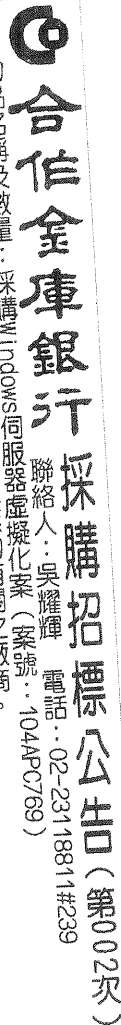 合作金庫銀行 採購招標公告（第002次）
聯絡人：吳耀輝 電話：02-23118811#239
名稱及數量：採購windows伺服器虛擬化案（案號：104APC769）